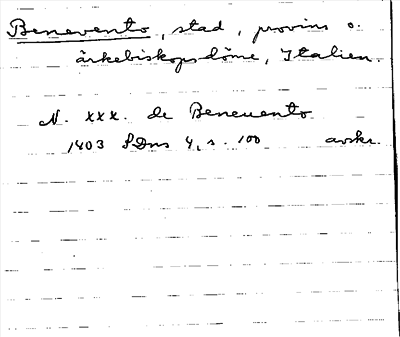 Benevento, stad, provins o.
ärkebiskopsdöme, Italien.
N. xxx. de Beneuento
1403 SDns 4, s. 100 avskr.